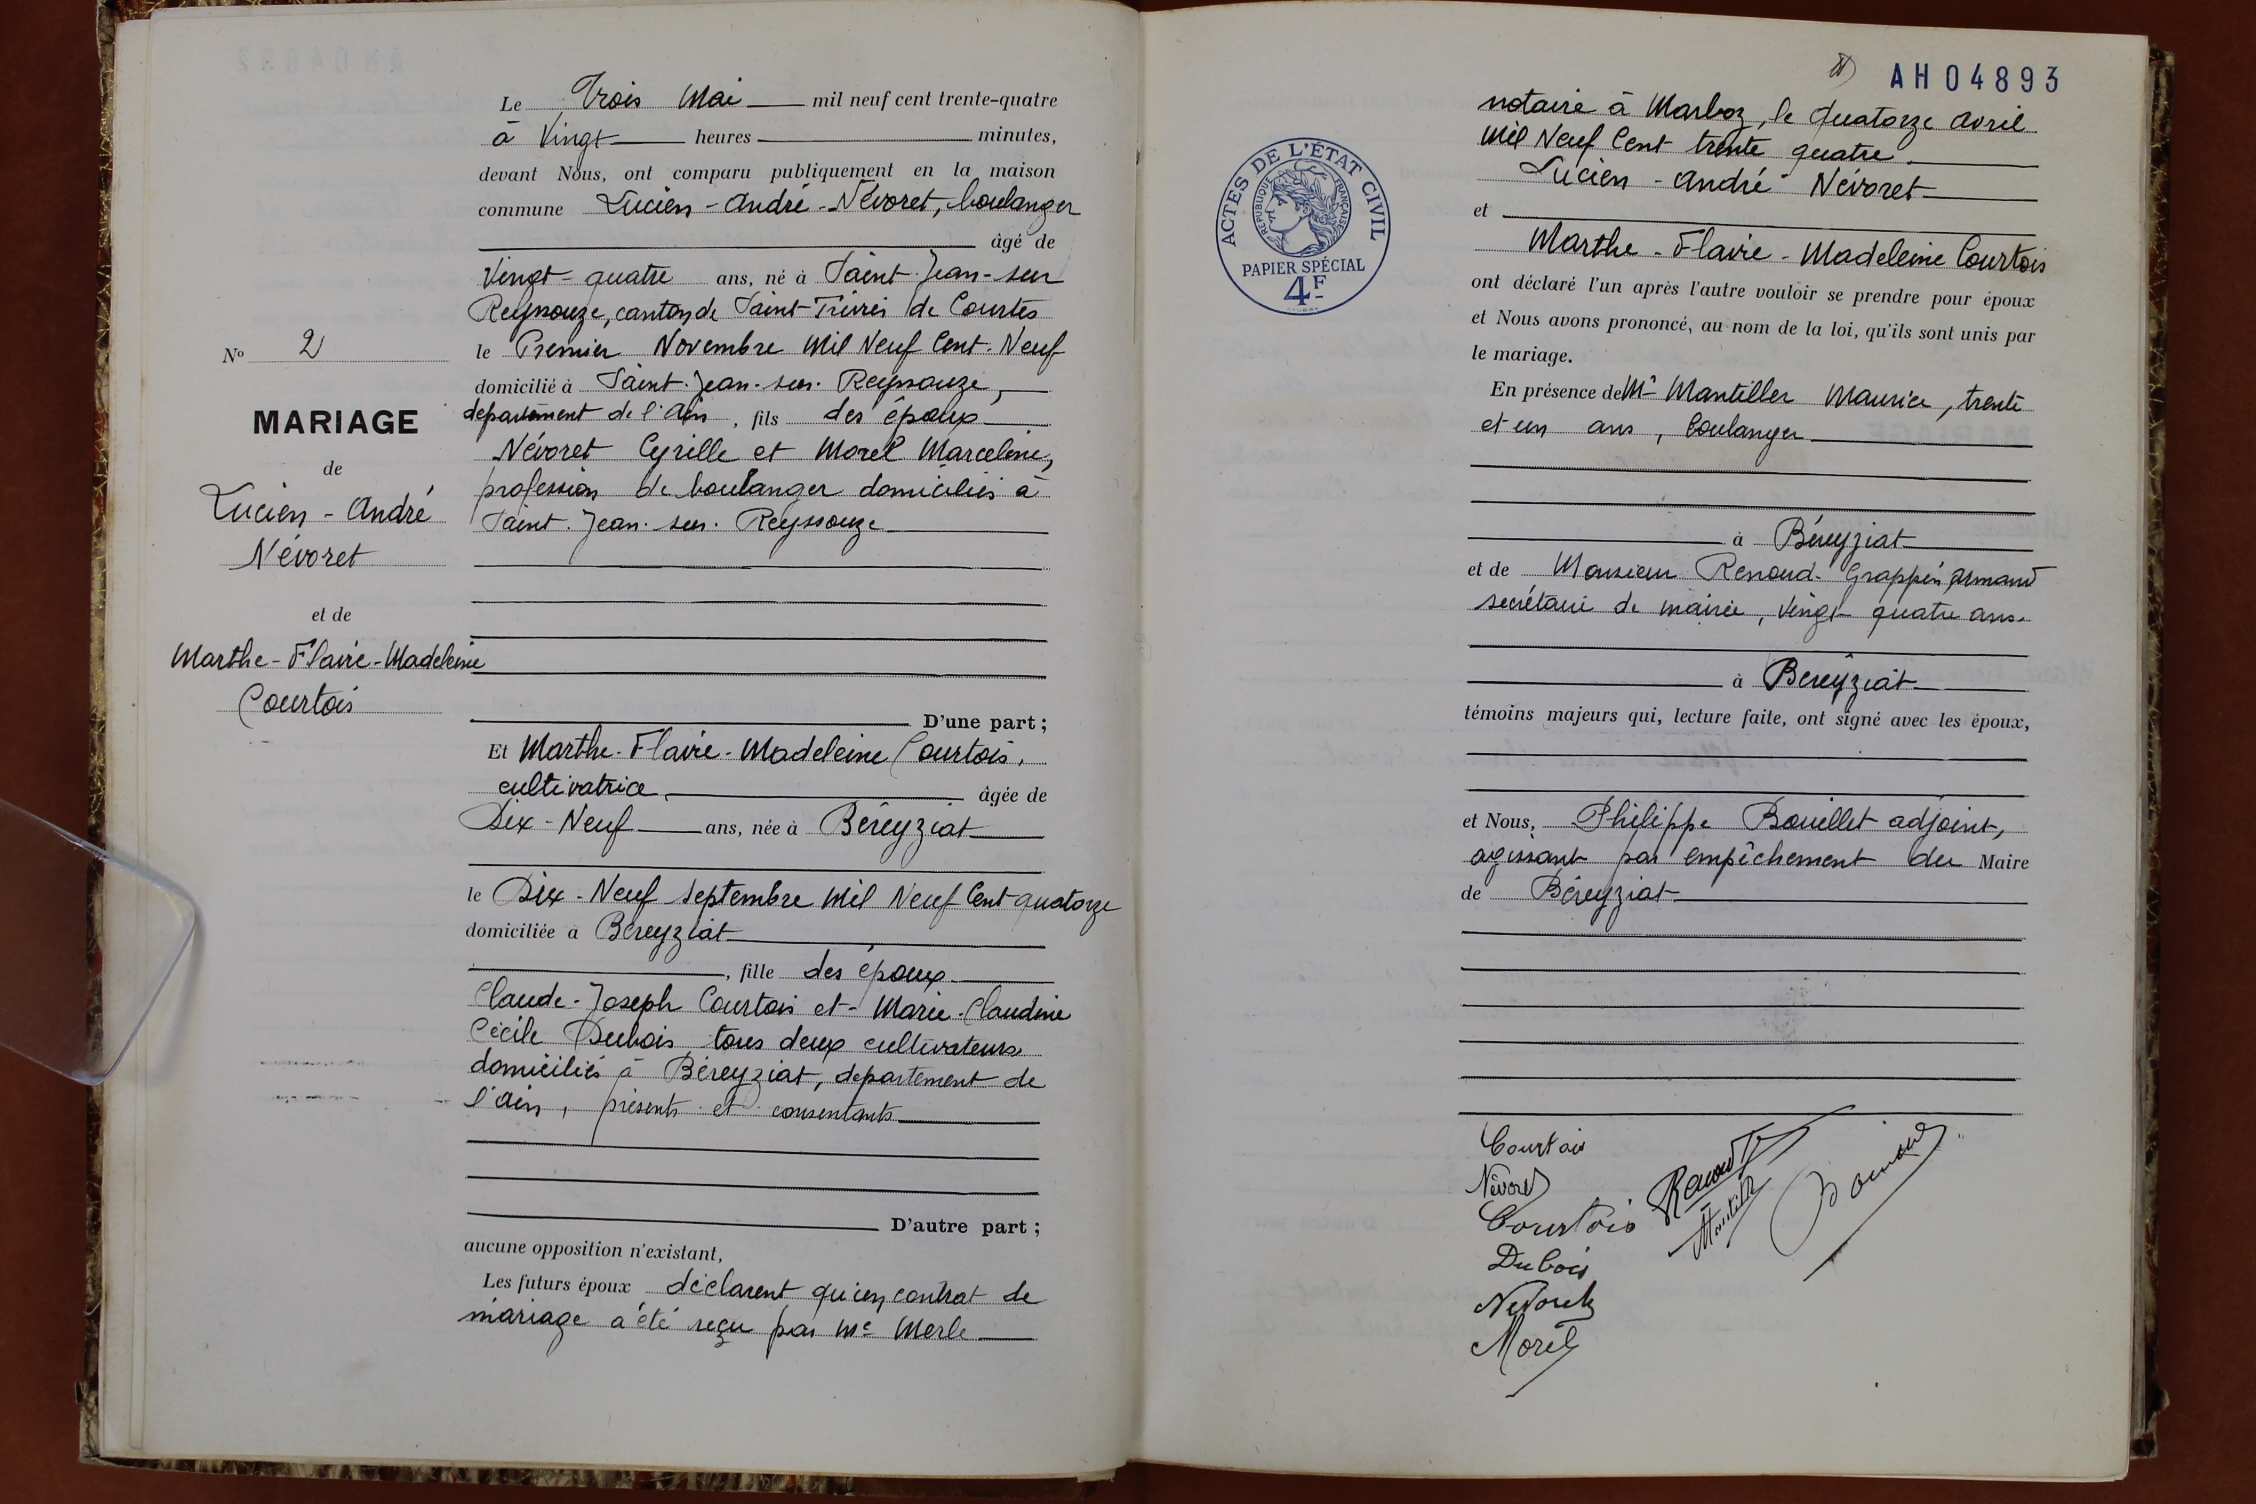 Le Trois Mai mil neuf cent trente-quatre
à Vingt heures minutes,
devant Nous, ont comparu publiquement en la maison
commune Lucien-André-Névoret, boulanger
âgé de
Vingt-quatre ans, né à Saint-Jean-sur
Reyssouze, canton de Saint-Trivier de Courtes
le Premier Novembre Mil Neuf Cent-Neuf
domicilié à Saint-Jean-sur-Reyssouze,
département de l'Ain, fils des époux
Névoret Cyrille et Morel Marceline,
profession de boulanger domiciliés à
Saint-Jean-sur-Reyssouze
No 2
MARIAGE
de
Lucien-André
Névoret
et de
Marthe-Flavie-Madeleine
Courtois
D'une part;
Et Marthe-Flavie-Madeleine Courtois,
cultivatrice, âgée de
Dix-Neuf ans, née à Béreyziat
le Dix-Neuf septembre Mil Neuf Cent quatorze
domiciliée à Béreyziat
, fille des époux
Claude-Joseph Courtois et Marie-Claudine
Cécile Dubois tous deux cultivateurs
domiciliés à Béreyziat, département de
l'Ain, présents et consentants
D'autre part;
aucune opposition n'existant,
Les futurs époux déclarent qu'un contrat de
mariage a été reçu par Me Merle
AH04893
notaire à Marboz, le quatorze avril
Mil Neuf Cent trente quatre
Lucien-André Névoret
et
Marthe-Flavie-Madeleine Courtois
ont déclaré l'un après l'autre vouloir se prendre pour époux
et Nous avons prononcé, au nom de la loi, qu'ils sont unis par
le mariage.
En présence de Mr Mantiller Maurice, trente
et un ans, boulanger
à Béreyziat
et de Monsieur Renoud-Grappin Armand
secrétaire de mairie, vingt-quatre ans
à Béreyziat
témoins majeurs qui, lecture faite, ont signé avec les époux,
et Nous, Philippe Bouillet adjoint,
agissant par empêchement du Maire
de Béreyziat
ACTES DE L'ÉTAT CIVIL
RÉPUBLIQUE FRANÇAISE
PAPIER SPÉCIAL
4F
Courtois
Névoret
Courtois
Dubois
Nevoret
Morel
Renoud
Mantiller